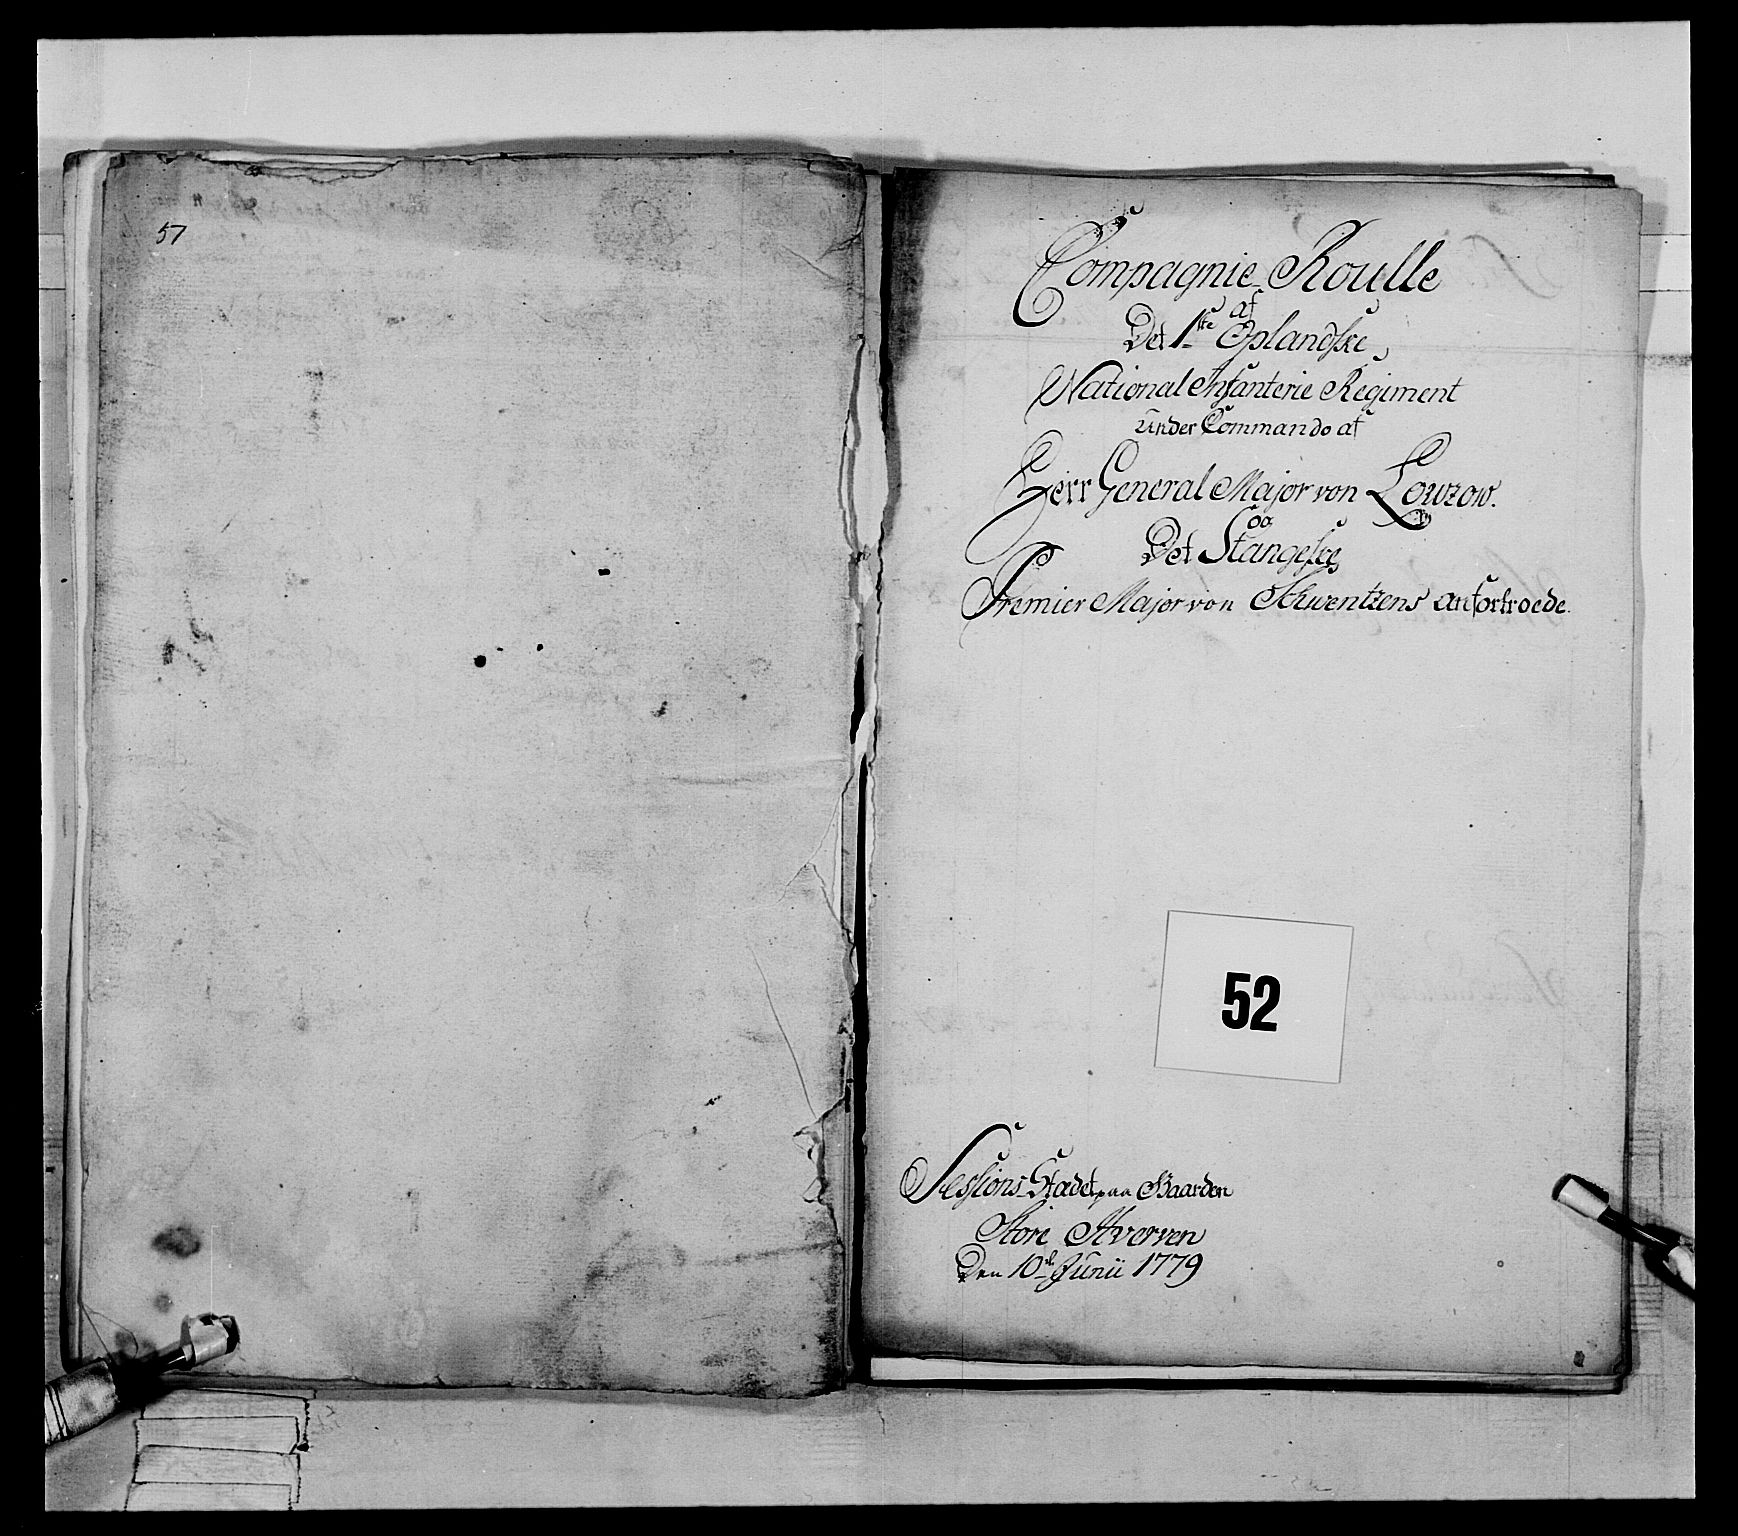 57
Compagnie Roulle
af
Det 1ste Oplandske
National Infanterie Regiment
under Commando af
Herr General Major von Lowzow.
og
Det Stangeske
Premier Major von Schwentzens anfortroede.
52
Sessions-Stadet paa Gaarden
Store Hverven
Den 10de Junii 1779